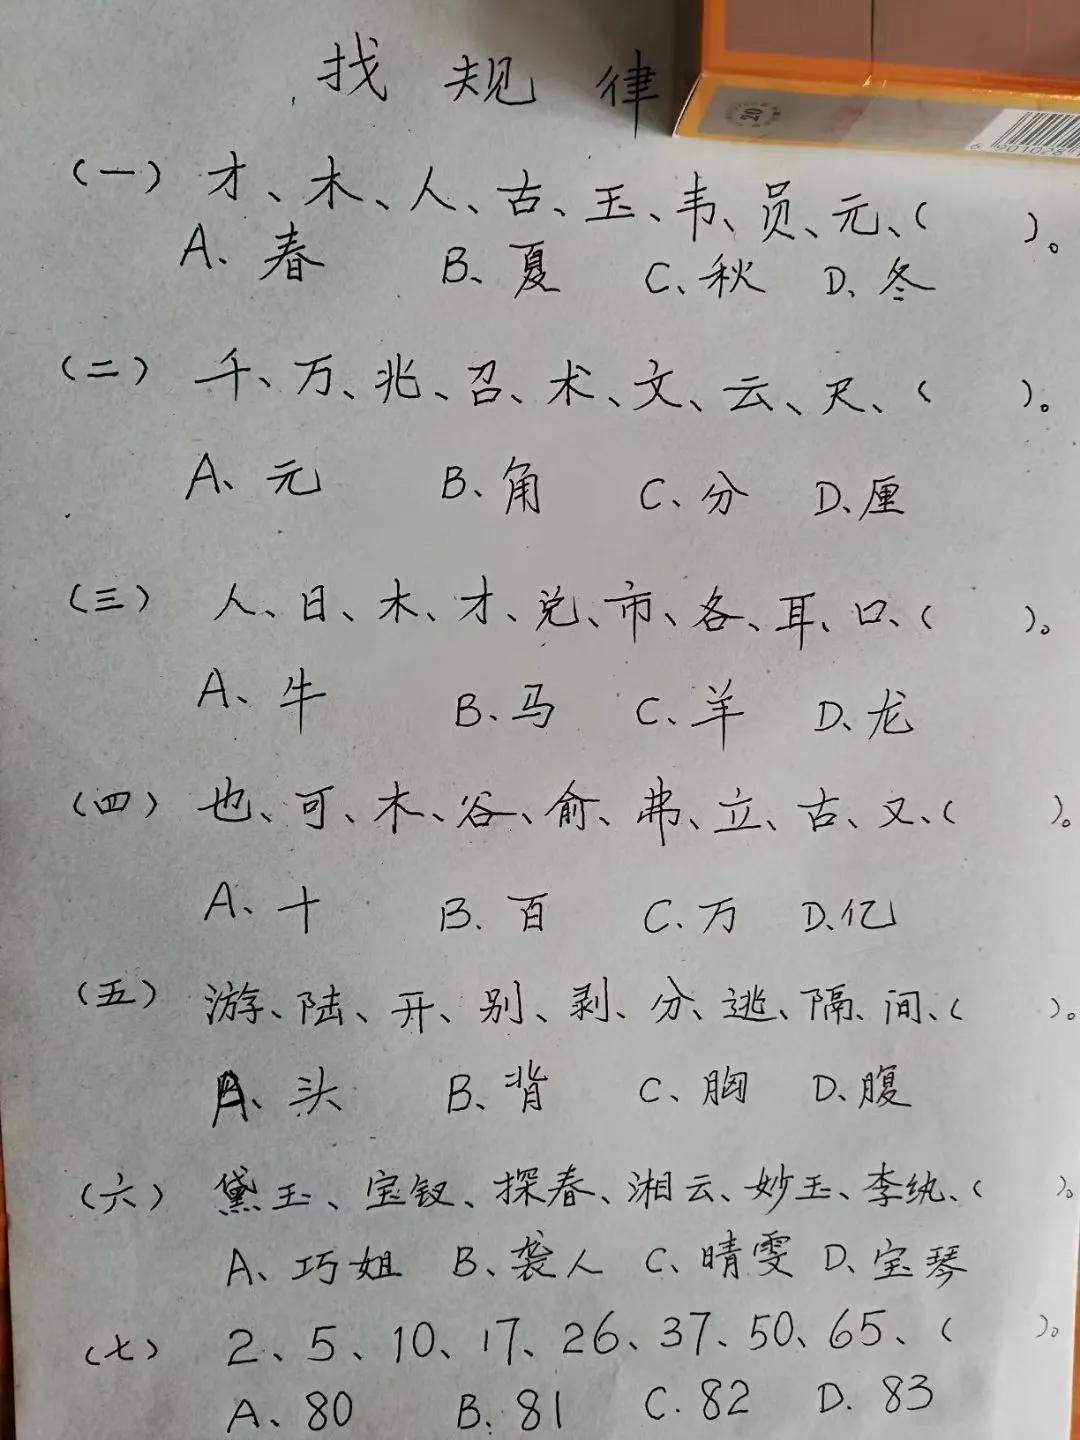 找规律
20
6 901028
(一) 才、木、人、古、玉、韦、员、元、( )。
A、春 B、夏 C、秋 D、冬
(二) 千、万、兆、召、术、文、云、尺、( )。
A、元 B、角 C、分 D、厘
(三) 人、日、木、才、兑、市、各、耳、口、( )。
A、牛 B、马 C、羊 D、龙
(四) 也、可、木、谷、俞、弗、立、古、又、( )。
A、十 B、百 C、万 D、亿
(五) 游、陆、开、别、剥、分、逃、隔、间、( )。
A、头 B、背 C、胸 D、腹
(六) 黛玉、宝钗、探春、湘云、妙玉、李纨、( )。
A、巧姐 B、袭人 C、晴雯 D、宝琴
(七) 2、5、10、17、26、37、50、65、( )。
A、80 B、81 C、82 D、83